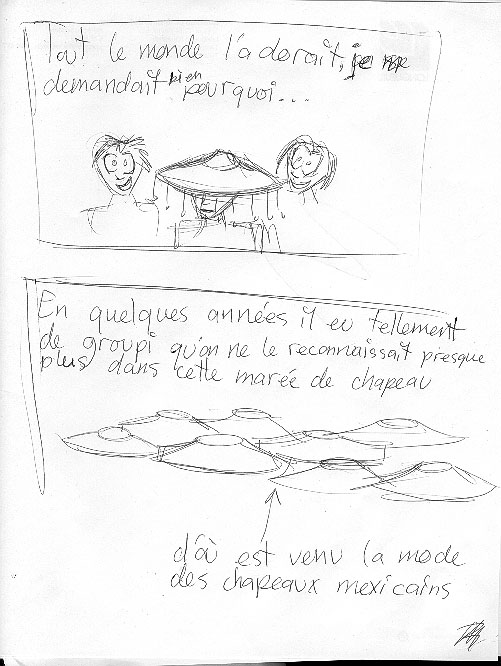 Tout le monde l'adorait, je me
demandait bien pourquoi...
En quelques années il eu tellement
de groupi qu'on ne le reconnaissait presque
plus dans cette marée de chapeau
d'où est venu la mode
des chapeaux mexicains